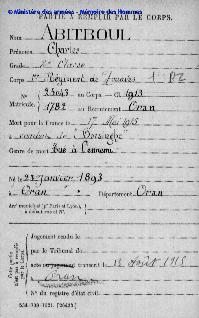 © Ministère des armées - Mémoire des Hommes
PARTIE À REMPLIR PAR LE CORPS.
Nom ABITBOUL
Prénoms Charles
Grade 2e Classe
Corps 1er Régiment de Zouaves 1er RZ
N° 23043 au Corps. — Cl. 1913
Matricule. 1782 au Recrutement Oran
Mort pour la France le 17 Mai 1915
à combats de
Genre de mort Tué à l'ennemi
Né le 23 Janvier 1893
à Oran Département Oran
Arr' municipal (pr Paris et Lyon),
à défaut rue et N°.
Cette partie
n'est pas à remplir
par le Corps.
Jugement rendu le
par le Tribunal de
acte ou jugement transcrit le 12 Août 1915
à Oran
N° du registre d'état civil
534-708-1921. [26434.]